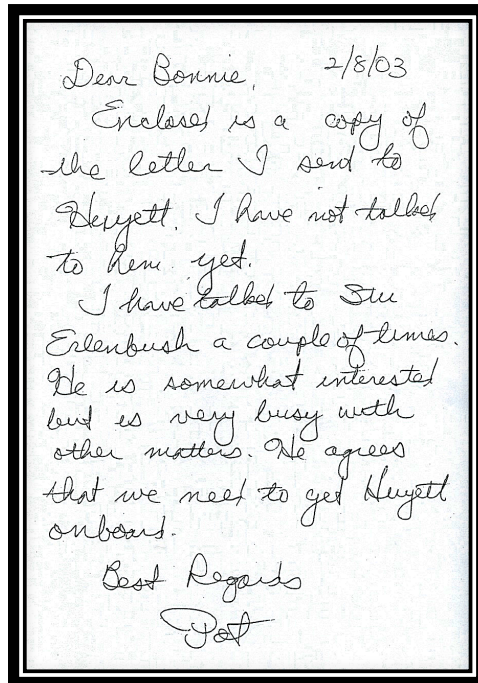 Dear Bonnie, 2/8/03
Enclosed is a copy of
the letter I sent to
Huyett. I have not talked
to him yet.
I have talked to Stu
Erlenbush a couple of times.
He is somewhat interested
but is very busy with
other matters. He agrees
that we need to get Huyett
onboard.
Best Regards
Pat